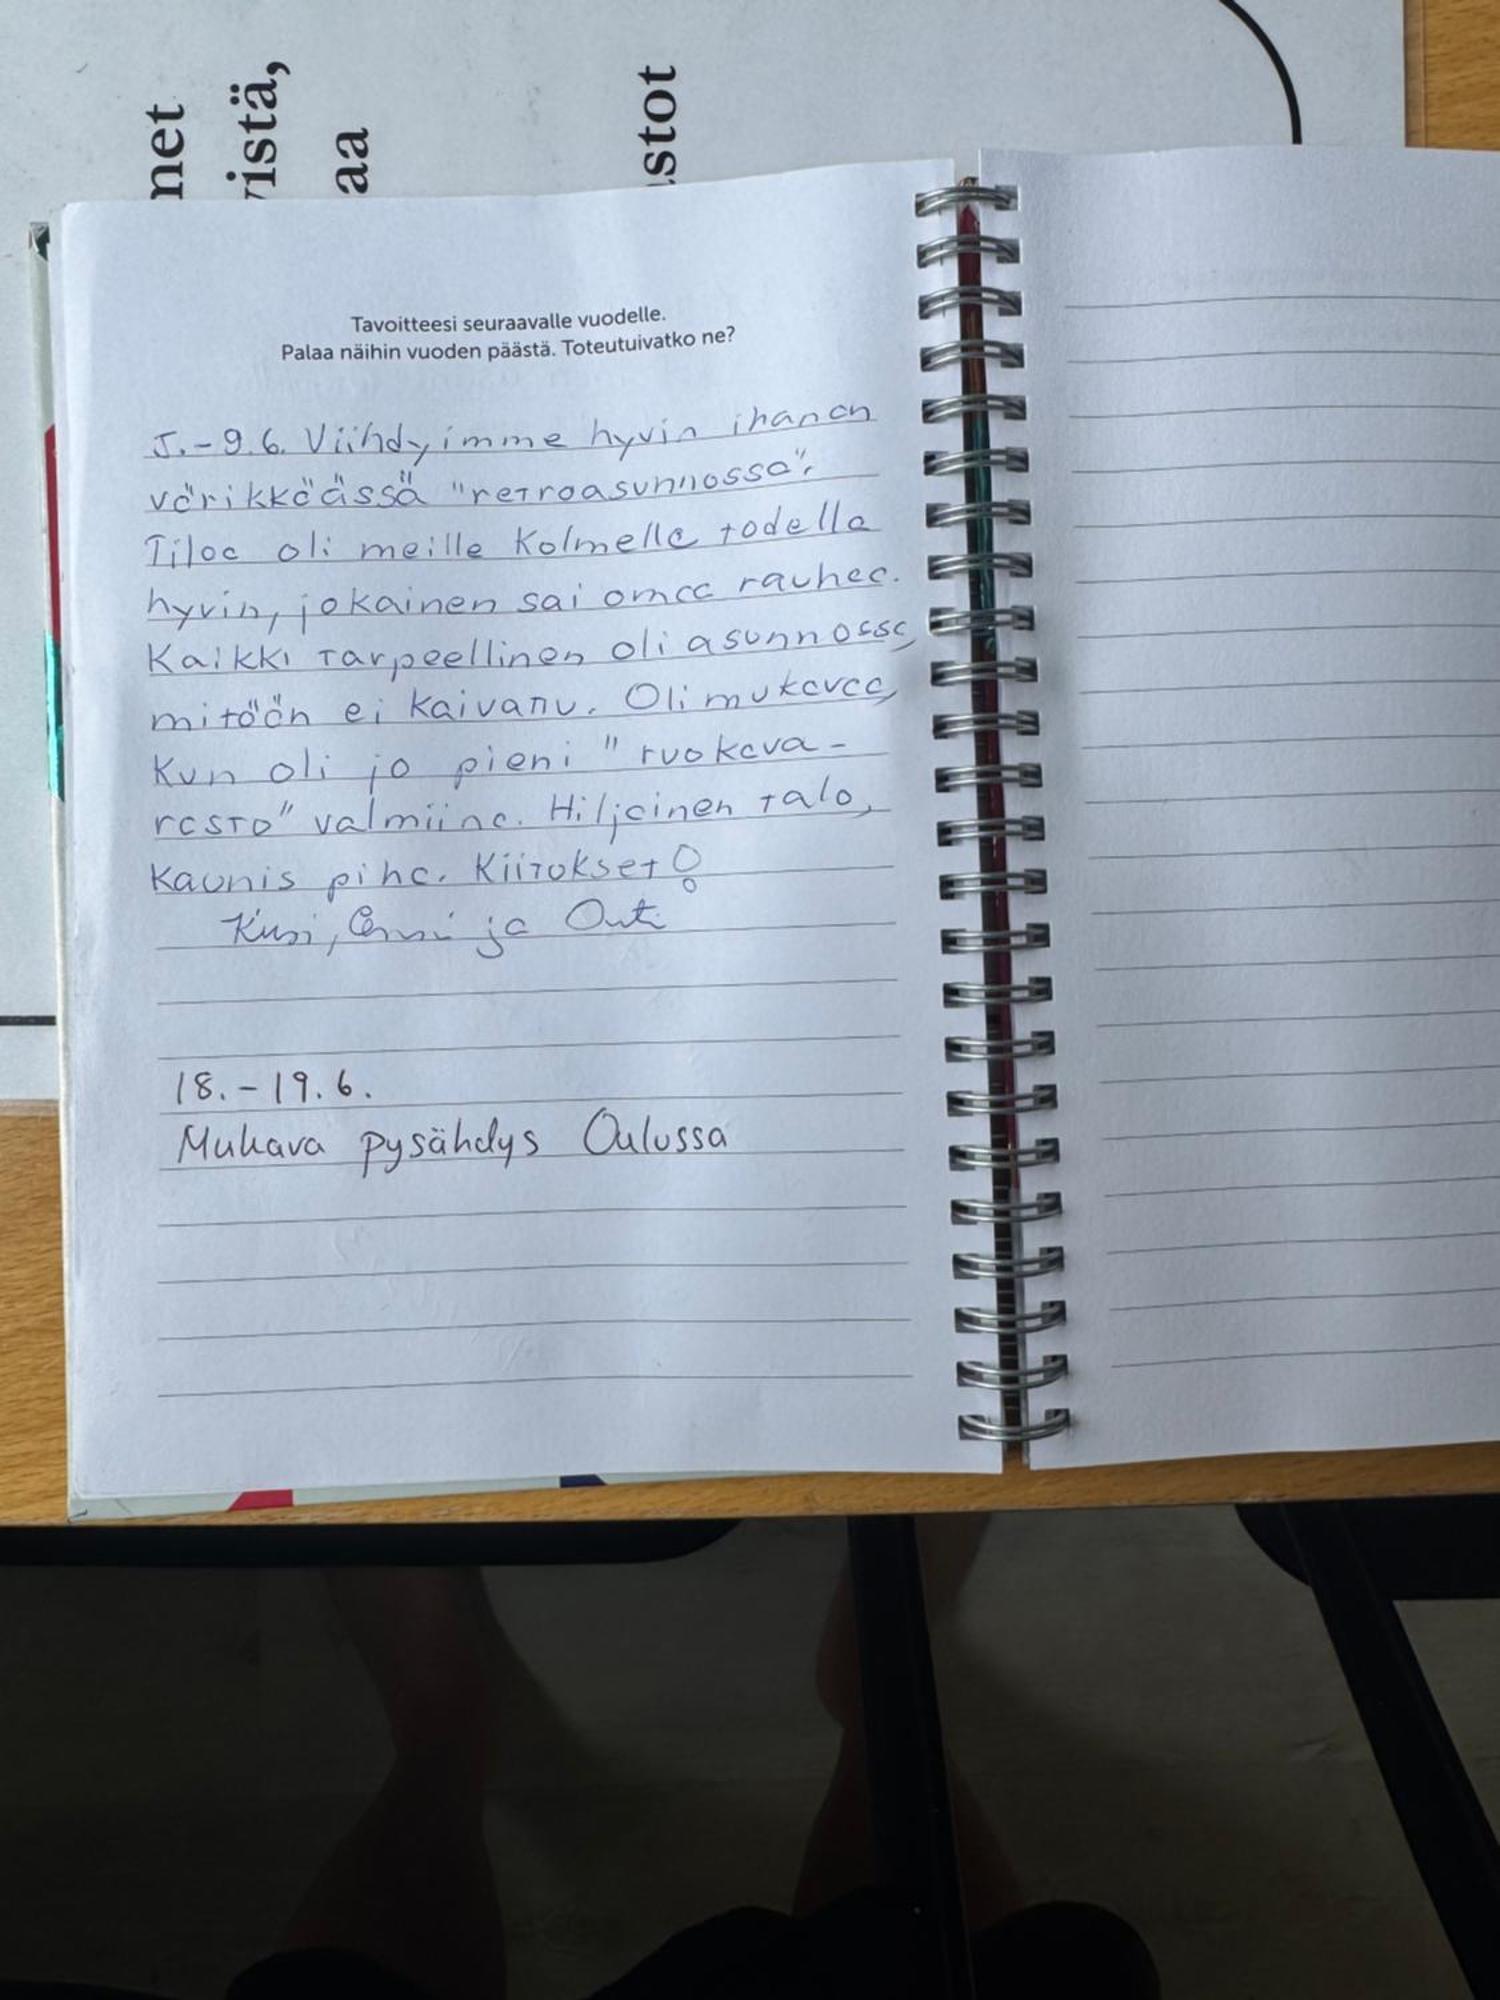 net
istä,
aa
stot
Tavoitteesi seuraavalle vuodelle.
Palaa näihin vuoden päästä. Toteutuivatko ne?
5.-9.6. Viihdyimme hyvin ihanan
värikkäässä "retroasunnossa".
Tilaa oli meille kolmelle todella
hyvin, jokainen sai omaa rauhaa.
Kaikki tarpeellinen oli asunnossa,
mitään ei kaivattu. Oli mukavaa,
kun oli jo pieni "ruokava-
rasto" valmiina. Hiljainen talo,
kaunis piha. Kiitokset!
ja Outi
18.-19.6.
Mukava pysähdys Oulussa